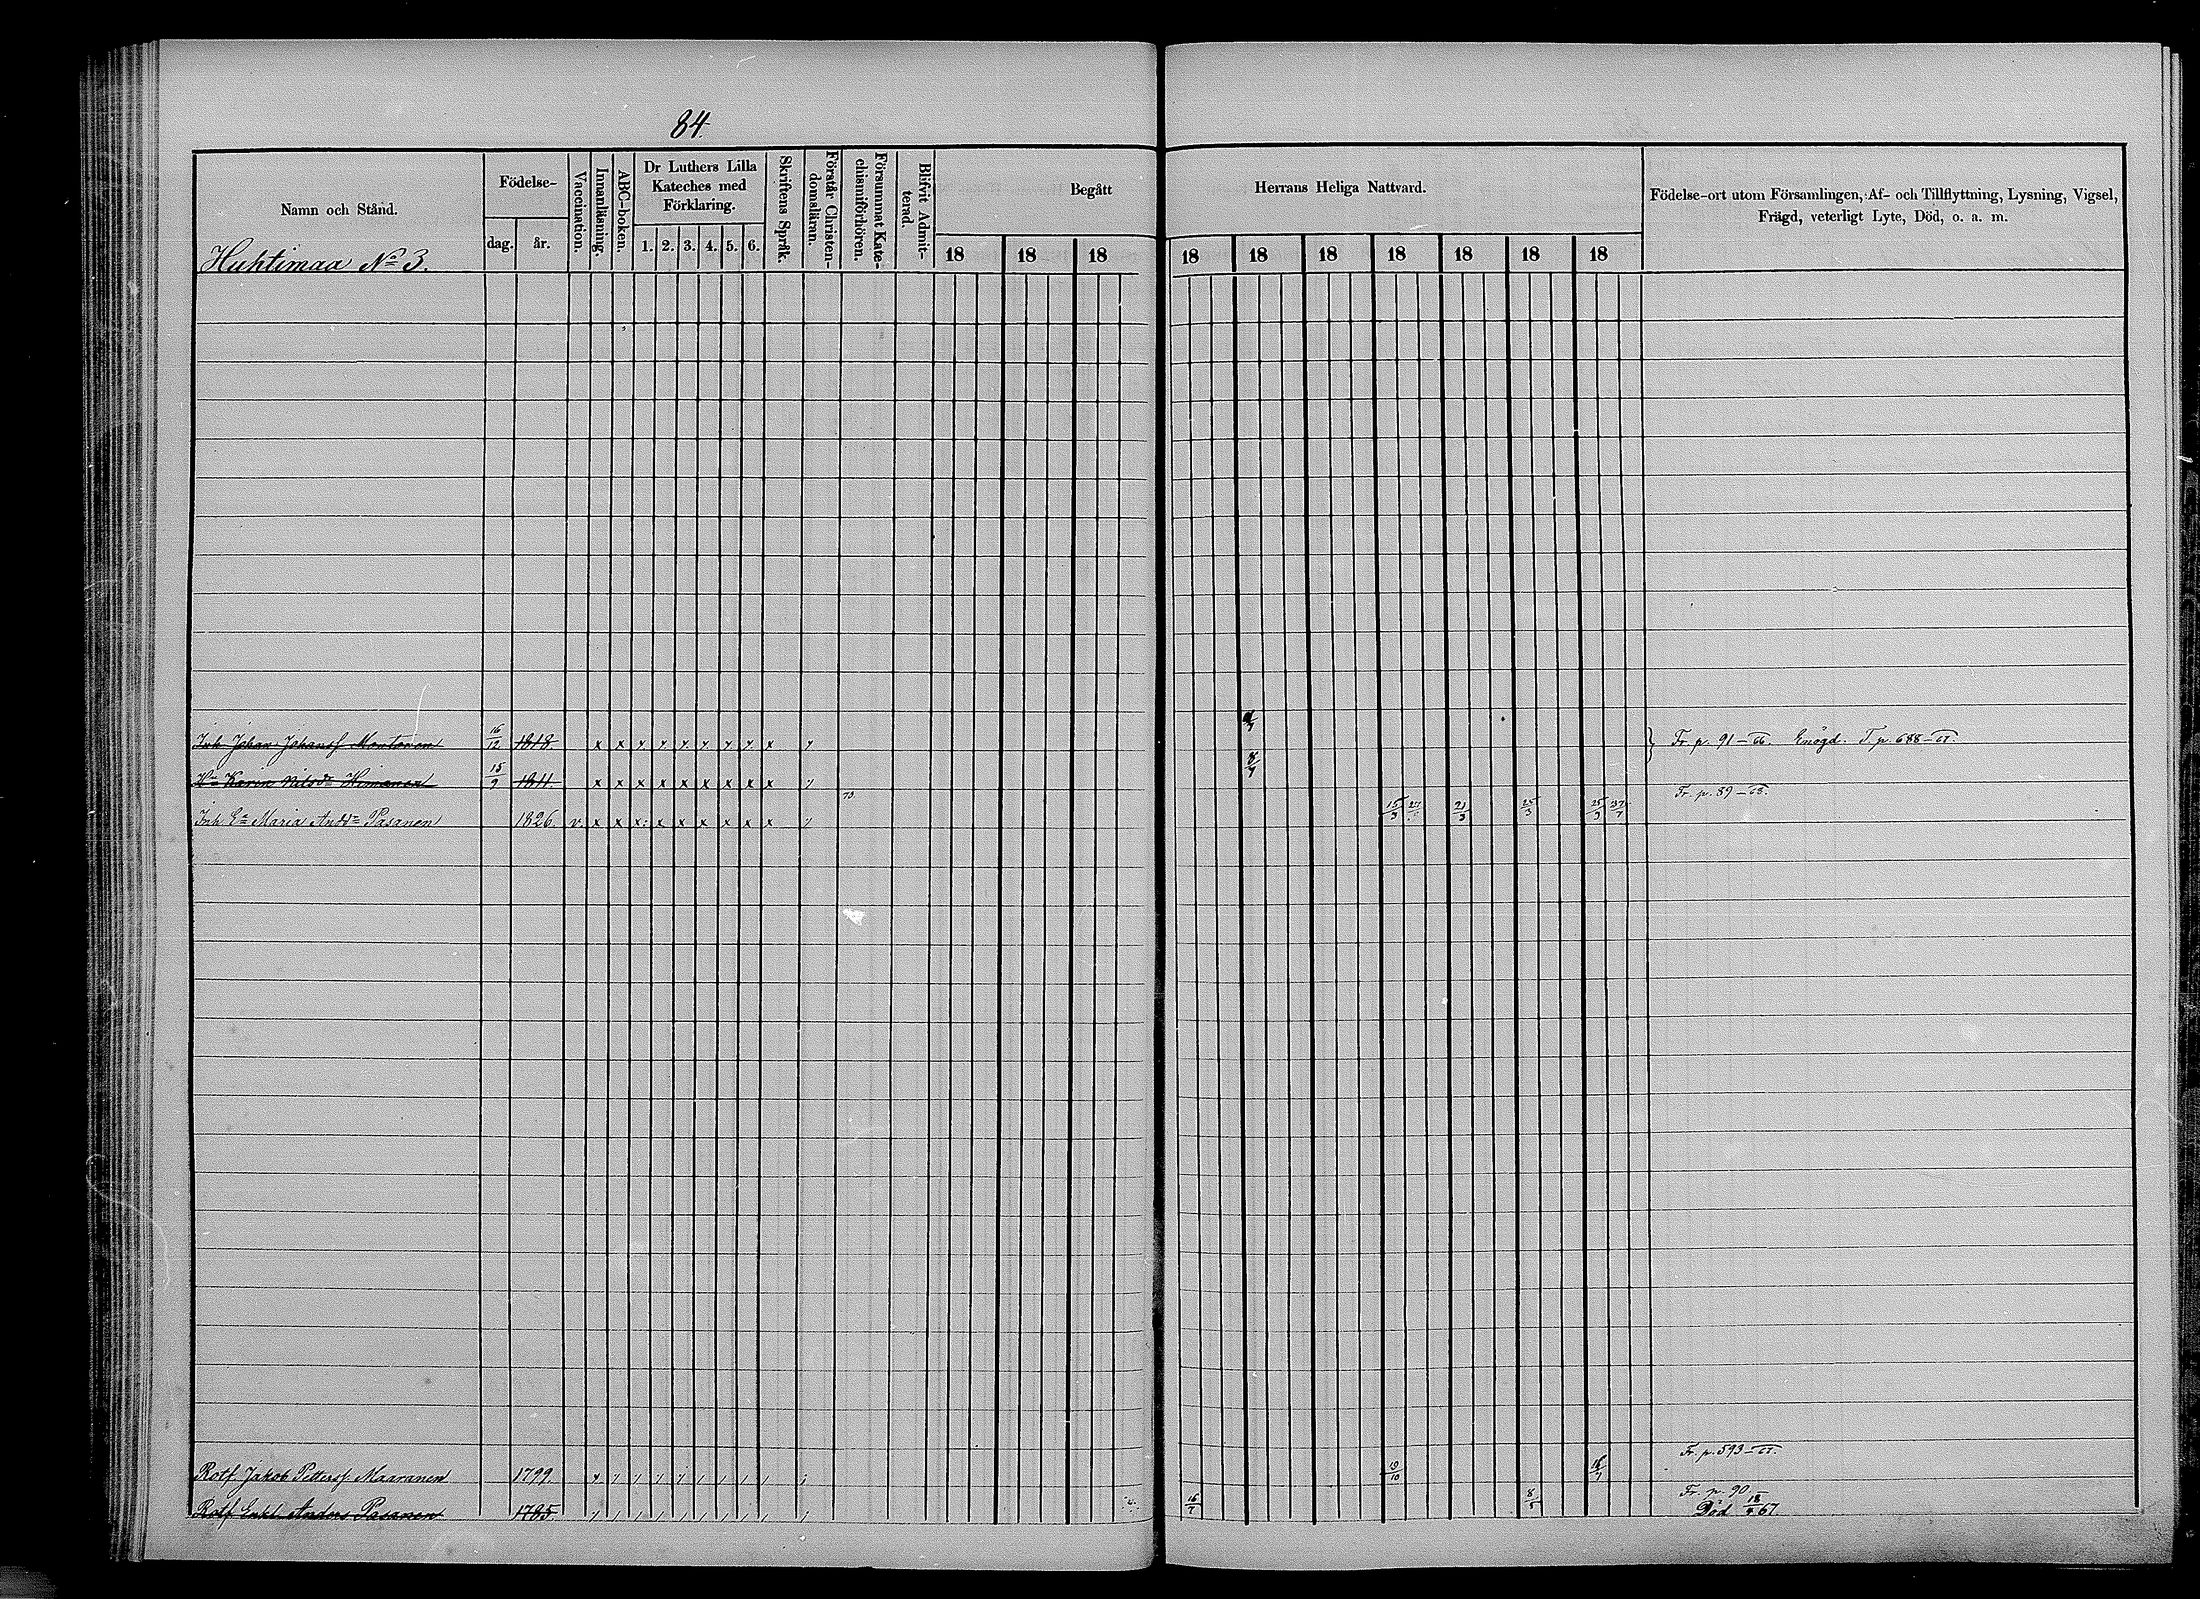 84.
Namn och Stånd.
Födelse-
dag. år.
Vaccination.
Innanläsning.
ABC-boken.
Dr Luthers Lilla
Kateches med
Förklaring.
1. 2. 3. 4. 5. 6.
Skriftens Språk.
Förstår Christen-
domsläran.
Försummat Kate-
chismiförhören.
Blifvit Admit-
terad.
Begått Herrans Heliga Nattvard.
18 18 18 18 18 18 18 18 18 18
Födelse-ort utom Församlingen, Af- och Tillflyttning, Lysning, Vigsel,
Frägd, veterligt Lyte, Död, o. a. m.
Huhtimaa No 3.
Inh Johan Johansf Montonen 16/12 1818. x x x x x x x x x Fr. p. 91-66. Enögd. T. p. 688-67.
Hu Karin Nilsdr Himanen 15/9 1811. x x x x x x x x x 8/7
73 Fr. p. 89-68.
Inh Ea Maria Andsdr Pasanen 1826. v. x x x: x x x x x x 15/3 21/3 25/3 25/3
Fr. p. 593-67.
Rotf. Jakob Pettersf. Maaranen 1799. 19/10
Fr. p. 90.
Rotf. Enkl. Anders Pasanen 1785. 16/7 8/5 Död 18/9 67.